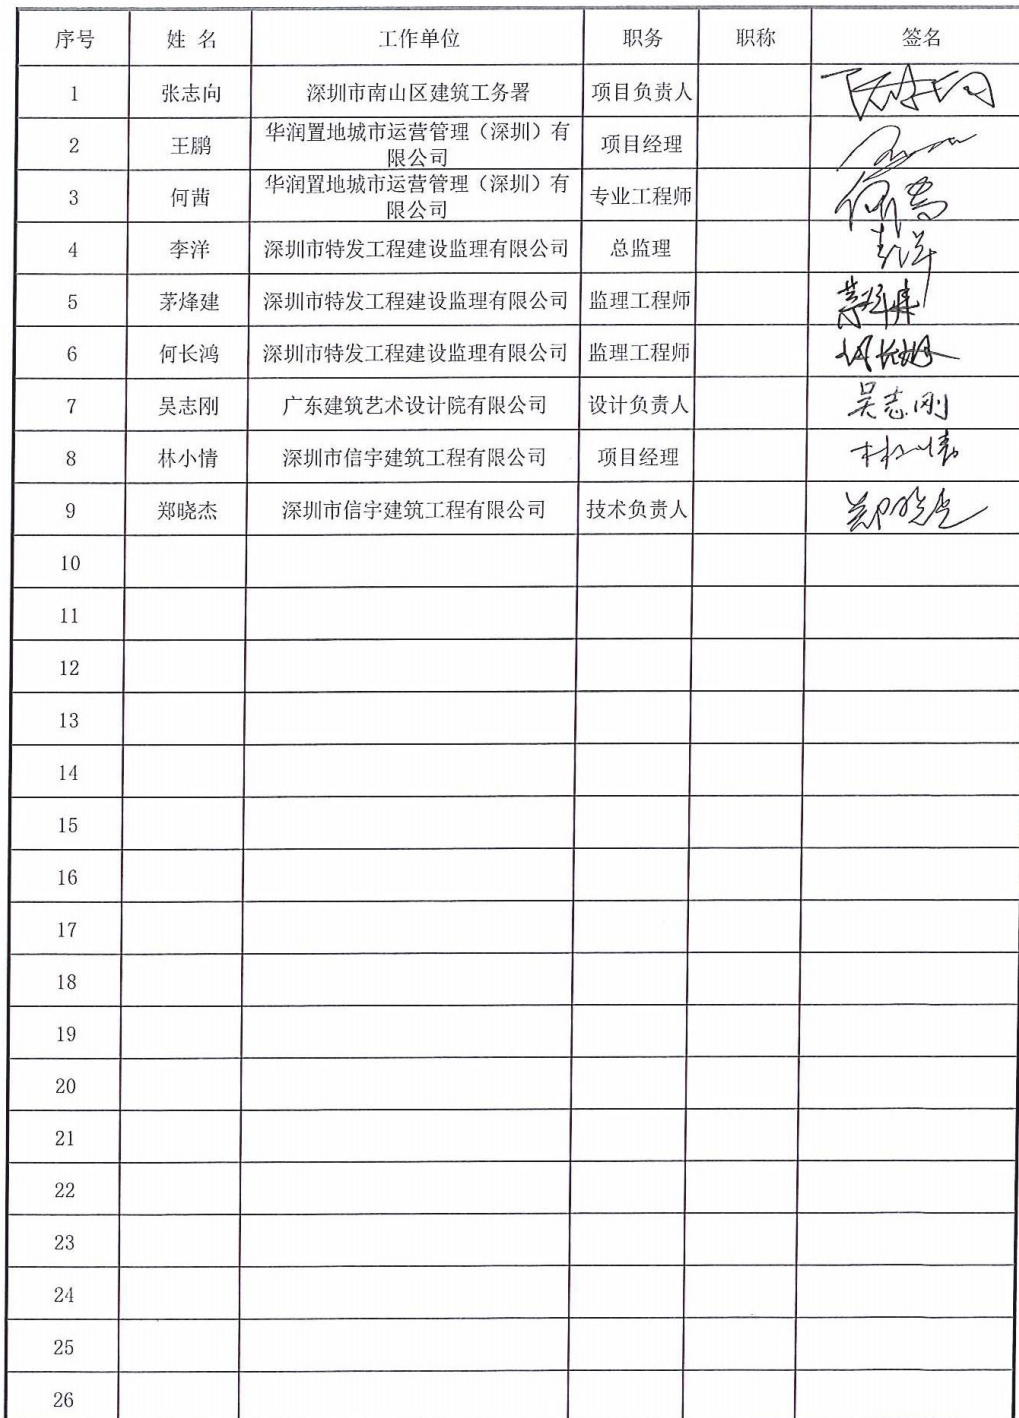 序号 姓 名 工作单位 职务 职称 签名
1 张志向 深圳市南山区建筑工务署 项目负责人
2 王鹏 华润置地城市运营管理（深圳）有
限公司 项目经理
3 何茜 华润置地城市运营管理（深圳）有
限公司 专业工程师
4 李洋 深圳市特发工程建设监理有限公司 总监理
5 茅烽建 深圳市特发工程建设监理有限公司 监理工程师
6 何长鸿 深圳市特发工程建设监理有限公司 监理工程师
7 吴志刚 广东建筑艺术设计院有限公司 设计负责人 吴志刚
8 林小情 深圳市信宇建筑工程有限公司 项目经理
9 郑晓杰 深圳市信宇建筑工程有限公司 技术负责人
10
11
12
13
14
15
16
17
18
19
20
21
22
23
24
25
26